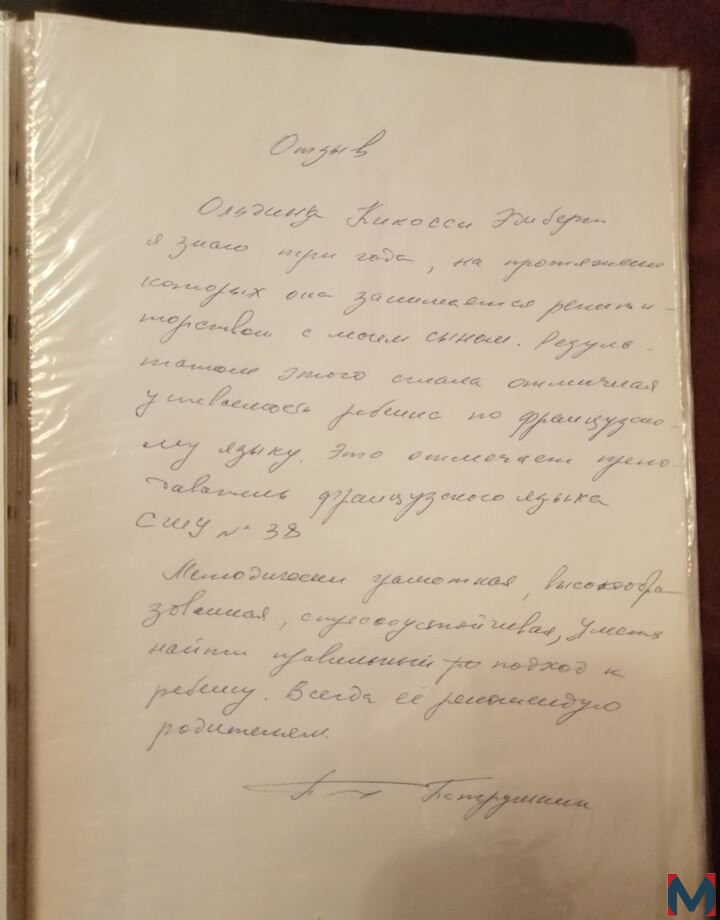 Отзыв
я знаю три года, на протяжении
которых она занимается репети-
торством с моим сыном. Резуль-
татом этого стала отличная
успеваемость ребёнка по французско-
му языку. Это отмечает препо-
даватель французского языка
СШУ № 38
Методически грамотная, высокообра-
зованная, стрессоустойчивая, умеет
найти правильный подход к
ребёнку. Всегда её рекомендую
родителям.
M